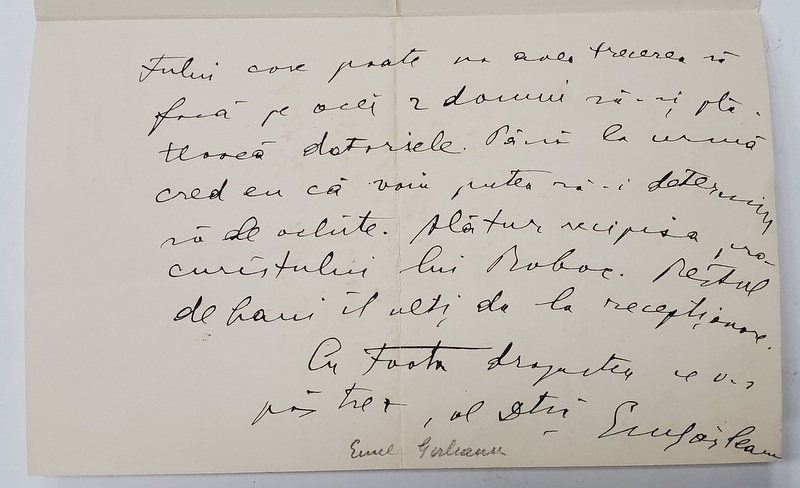 tului care poate va avea trecerea să
facă pe acei 2 domni să-și plă-
tească datoriele. Până la urmă
cred eu că voiu putea să-i determin
să se achite. Alătur recipisa procu-
ristului lui Boboc. Restul
de bani îl veți da la recepționare.
Cu toată dragostea ce v-o
păstrez, al Dtră Em Gârleanu
Emil Gârleanu